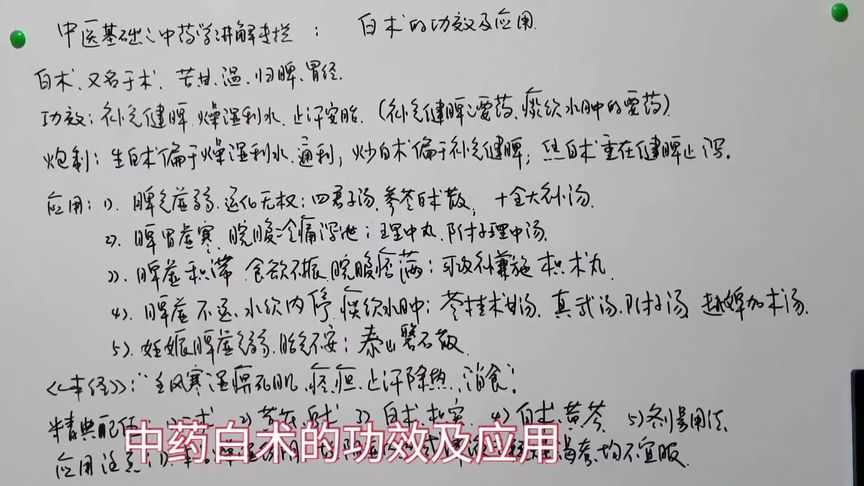 中医基础之中药学讲解专栏：白术的功效及应用.
白术、又名于术、苦甘、温、归脾、胃经.
功效：补气健脾 燥湿利水、止汗安胎.（补气健脾之要药、痰饮水肿的要药）
炮制：生白术偏于燥湿利水.通利；炒白术偏于补气健脾；焦白术重在健脾止泻。
应用：1）. 脾气虚弱.运化无权：四君子汤、参苓白术散、十全大补汤.
2）. 脾胃虚寒 脘腹冷痛泄泻；理中丸、附子理中汤.
3）. 脾虚积滞 食欲不振 脘腹痞满：可攻补兼施 枳术丸
4）. 脾虚不运、水饮内停 痰饮水肿：苓桂术甘汤、真武汤、附子汤、越婢加术汤.
5）. 妊娠脾虚气弱、胎气不安：泰山磐石散.
《本经》：“主风寒湿痹死肌、痉、疸、止汗除热、消食”.
经典配伍 3）白术 枳实、4）白术 黄芩、
应用注意 均不宜服.
中药白术的功效及应用